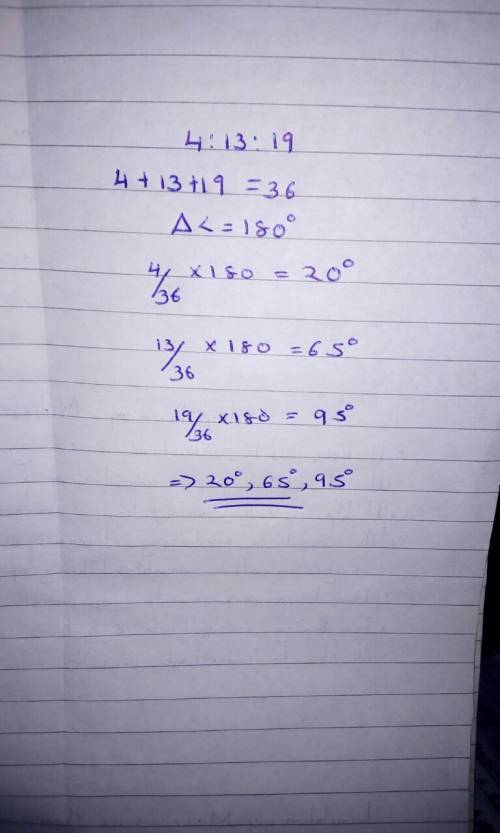 4:13:19
4+13+19 = 36
Δ< = 180°
4/36 × 180 = 20°
13/36 × 180 = 65°
19/36 × 180 = 95°
=> 20°, 65°, 95°